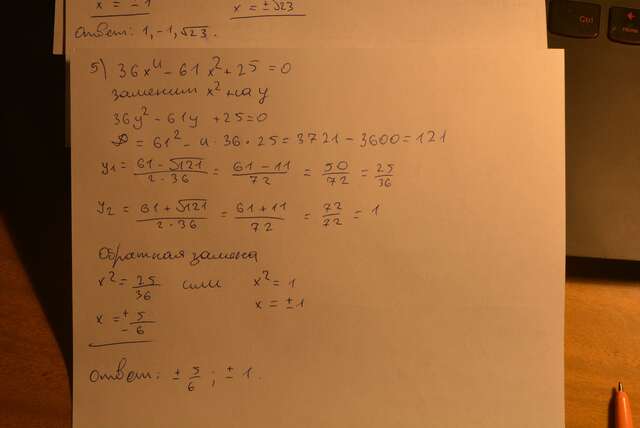 x = -1
x = ±√23
Ответ: 1, -1, √23.
5) 36x⁴ - 61x² + 25 = 0
заменим x² на y
36y² - 61y + 25 = 0
D = 61² - 4·36·25 = 3721 - 3600 = 121
y₁ = (61 - √121)/(2·36) = (61 - 11)/72 = 50/72 = 25/36
y₂ = (61 + √121)/(2·36) = (61 + 11)/72 = 72/72 = 1
Обратная замена
x² = 25/36 или x² = 1
x = ±5/6 x = ±1
Ответ: ±5/6; ±1.
Ctrl